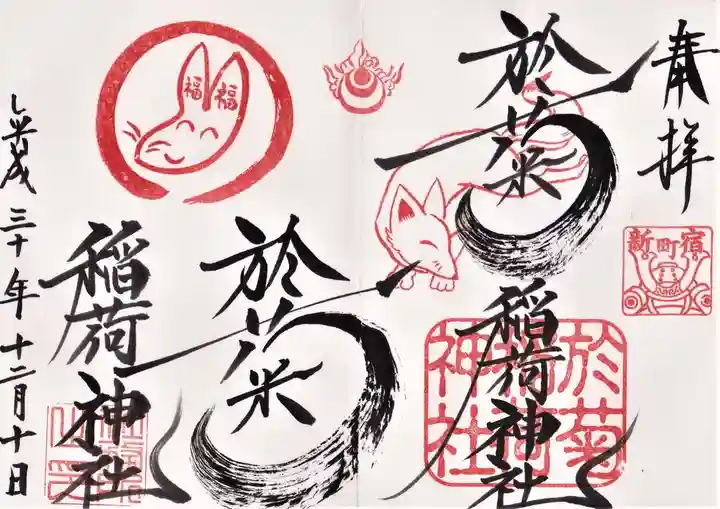 奉拝
新町宿
於菊
稲荷神社
於菊稲荷神社
福福
於菊
稲荷神社
平成三十年十二月十日